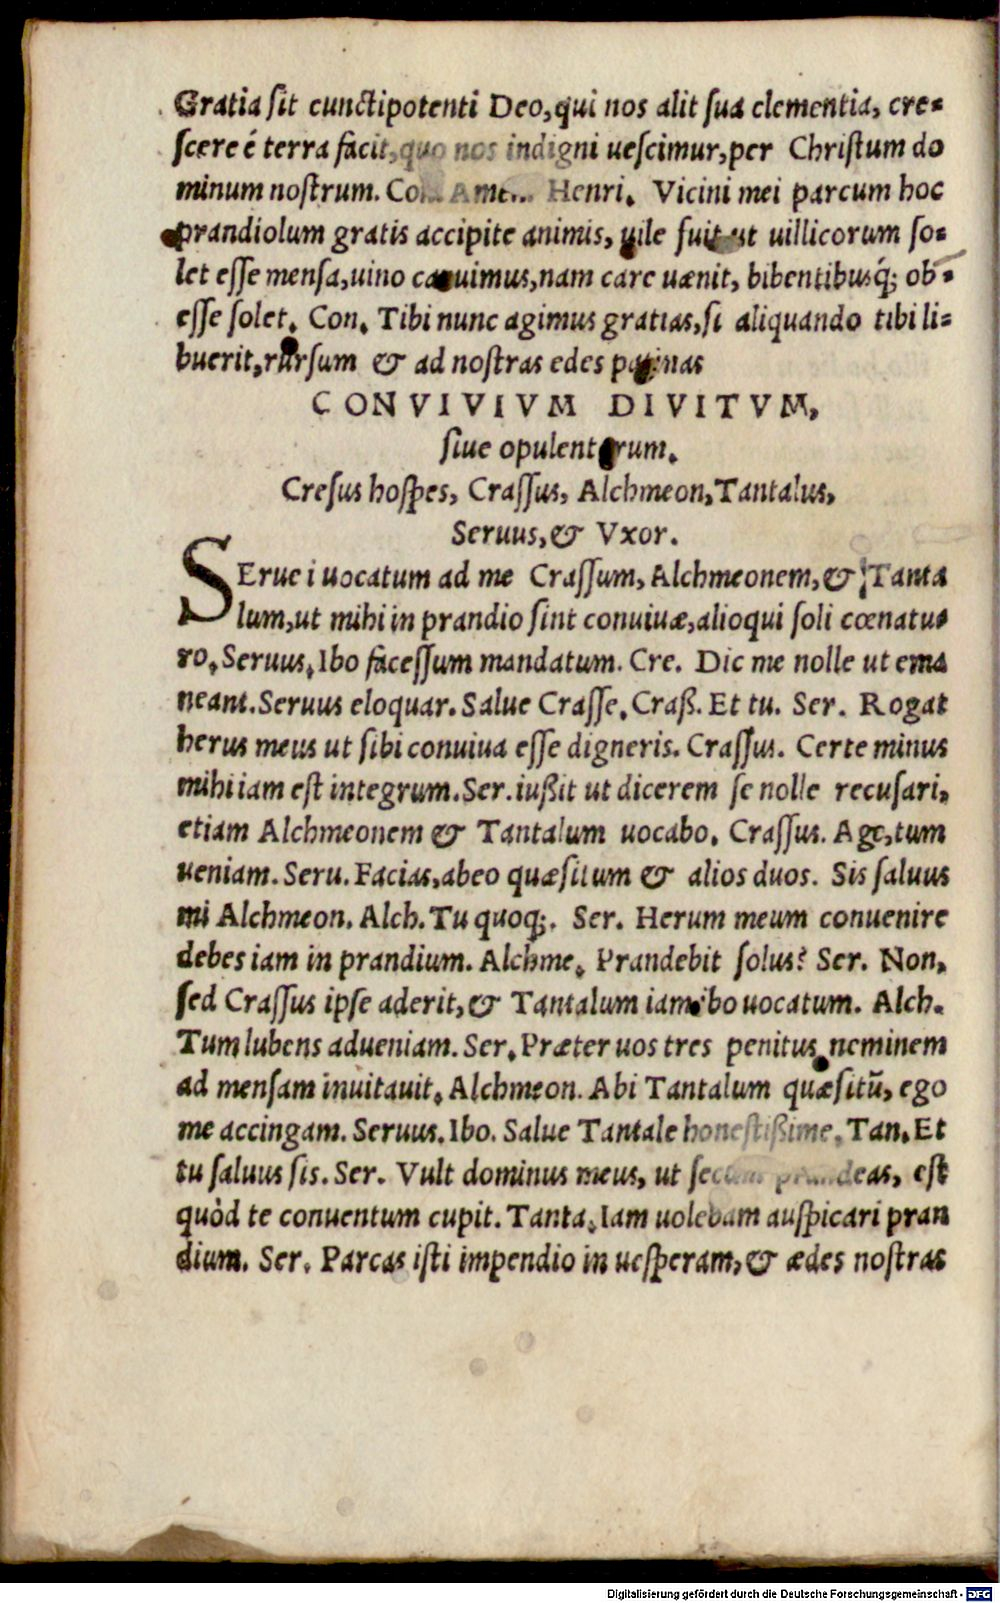 Gratia sit cunctipotenti Deo, qui nos alit sua clementia, cre=
scere é terra facit, quo nos indigni uescimur, per Christum do
minum nostrum. Con. Amen. Henri. Vicini mei parcum hoc
prandiolum gratis accipite animis, uile fuit ut uillicorum so=
let esse mensa, uino caruimus, nam care uænit, bibentibusq́; ob=
esse solet. Con. Tibi nunc agimus gratias, si aliquando tibi li=
buerit, rursum & ad nostras edes paginas
CONVIVIVM DIVITVM,
siue opulentorum.
Cresus hospes, Crassus, Alchmeon, Tantalus,
Seruus, & Vxor.
SErue i uocatum ad me Crassum, Alchmeonem, & Tanta
lum, ut mihi in prandio sint conuiuæ, alioqui soli cœnatu=
ro. Seruus. Ibo facessum mandatum. Cre. Dic me nolle ut ema
neant. Seruus eloquar. Salue Crasse. Craß. Et tu. Ser. Rogat
herus meus ut sibi conuiua esse digneris. Crassus. Certe minus
mihi iam est integrum. Ser. iußit ut dicerem se nolle recusari,
etiam Alchmeonem & Tantalum uocabo. Crassus. Age, tum
ueniam. Seru. Facias, abeo quæsitum & alios duos. Sis saluus
mi Alchmeon. Alch. Tu quoq;. Ser. Herum meum conuenire
debes iam in prandium. Alchme. Prandebit solus? Ser. Non,
sed Crassus ipse aderit, & Tantalum iam ibo uocatum. Alch.
Tum lubens adueniam. Ser. Præter uos tres penitus neminem
ad mensam inuitauit. Alchmeon. Abi Tantalum quæsitū, ego
me accingam. Seruus. Ibo. Salue Tantale honestißime. Tan. Et
tu saluus sis. Ser. Vult dominus meus, ut secum prandeas, est
quòd te conuentum cupit. Tanta. Iam uolebam auspicari pran
dium. Ser. Parcas isti impendio in uesperam, & ædes nostras
Digitalisierung gefördert durch die Deutsche Forschungsgemeinschaft - DFG